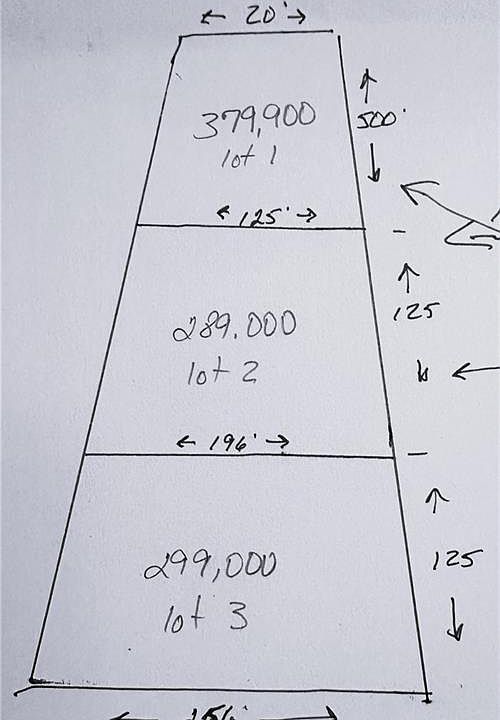 ← 20' →
379,900
lot 1
↑
500'
↓
← 125' →
↑
125
289.000
lot 2
← 196' →
↑
125
↓
299,000
lot 3